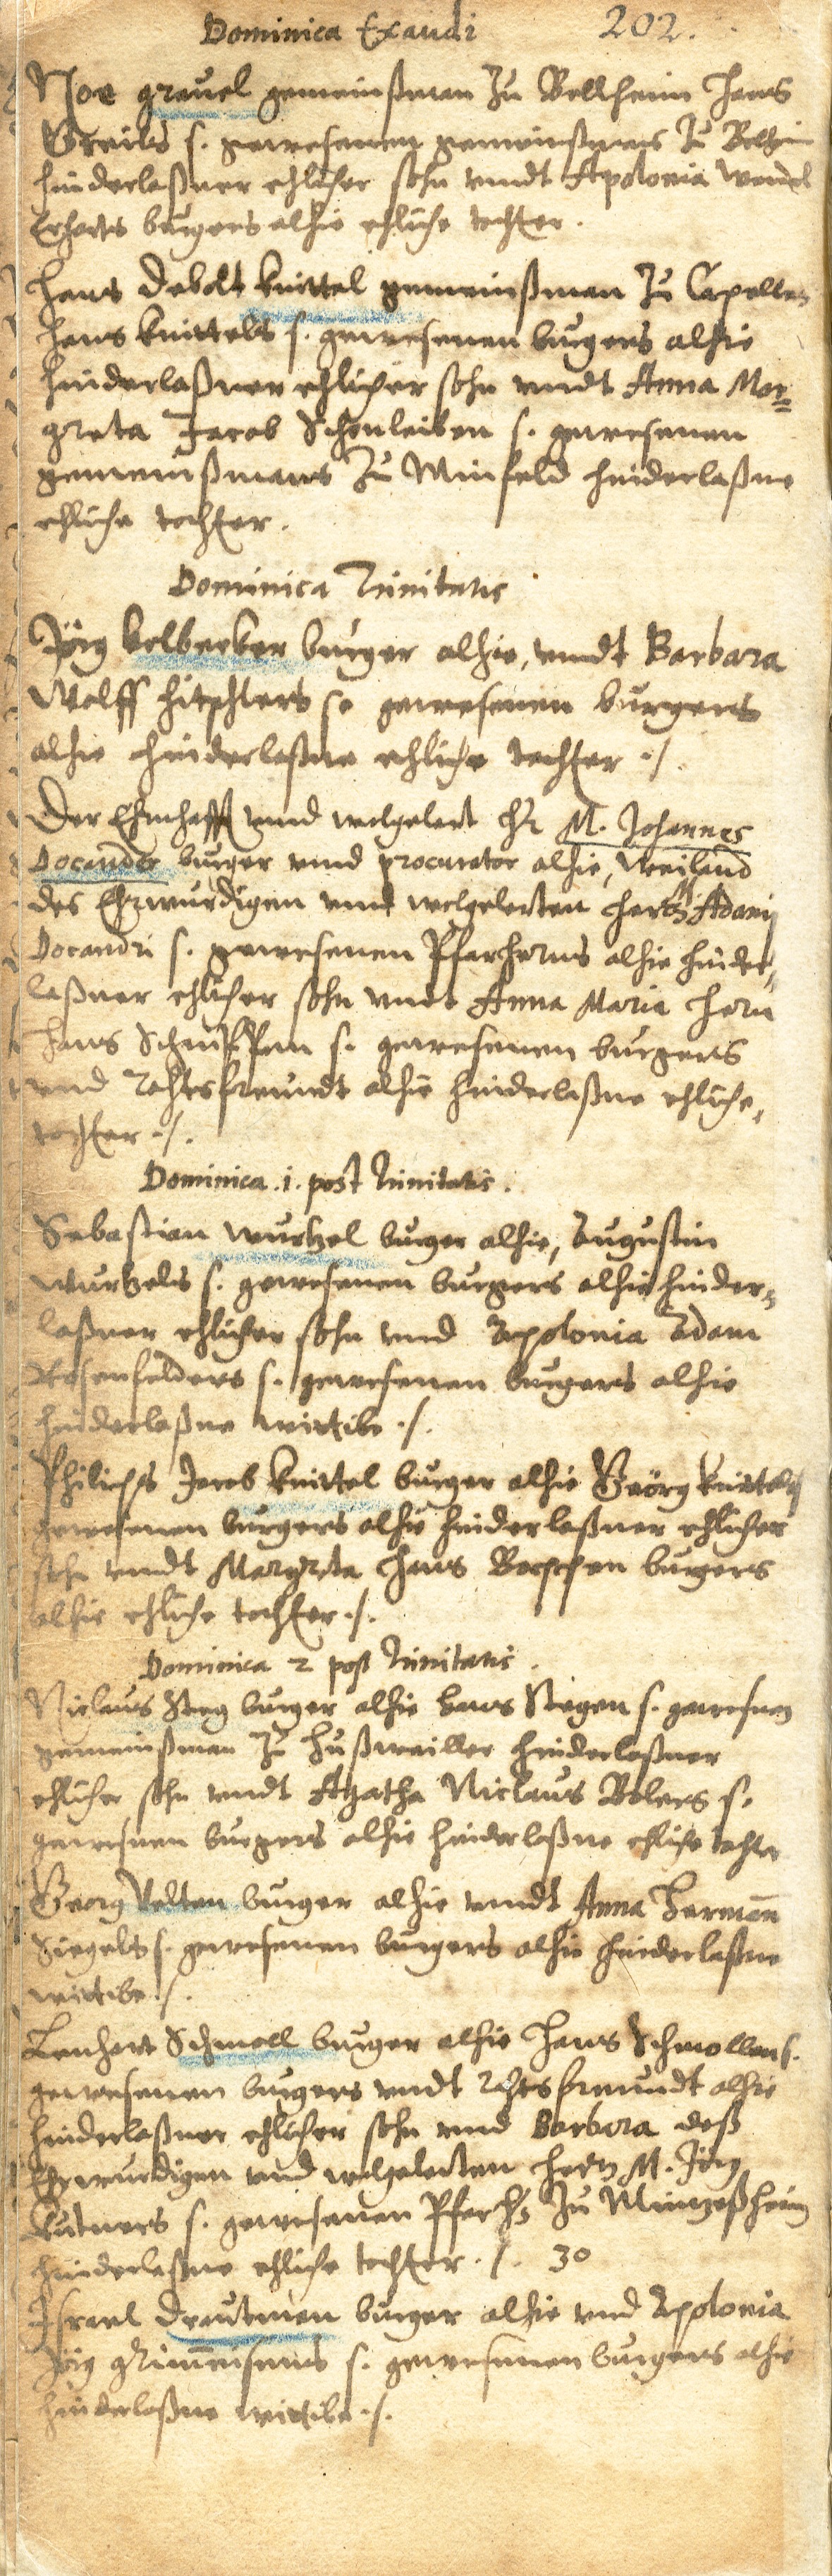 Dominica Exaudi 202.
Noe greuel gemeinßman zu Bellheim Hans
s. gewesenen gemeinßmans zu Belheim
hinderlaßner ehlicher sohn vndt Apolonia Wendel
Erharts burgers alhie ehliche tochter.
Hans Debolt knittel gemeinßman zu Capellen
Hans knittels s. gewesenen burgers alhie
hinderlaßner ehlicher sohn vndt Anna Mar=
greta Jacob Schenleiben s. gewesenen
gemeinßmans zu Minfeld hinderlaßne
ehliche tochter.
Dominica Trinitatis
Jörg kelbecker burger alhie, vndt Barbara
Wolff s. gewesenen burgers
alhie hinderlaßne ehliche tochter ./.
Der Ehrnhafft vnnd wolgelert Hr M. Johannes
Docander burger vnnd procurator alhie, Weiland
des Ehrwürdigen vnnd wolgelerten Hern M. Adami
Docandri s. gewesenen Pfarherns alhie hinder=
laßner ehlicher sohn vndt Anna Maria Hern
Hans s. gewesenen burgers
vnd Rechtsfreundt alhie hinderlaßne ehliche
tochter ./.
Dominica .1. post Trinitatis.
Sebastian wurtzel burger alhie, Augustin
wurtzels s. gewesenen burgers alhie hinder=
laßner ehlicher sohn vnnd Apolonia Adam
Rosenfelders s. gewesenen burgers alhie
hinderlaßne wittibe ./.
Philips Jacob knittel burger alhie Geörg knittels
gewesenen burgers alhie hinderlaßner ehlicher
sohn vndt Margreta Hans burgers
alhie ehliche tochter ./.
Dominica 2 post Trinitatis.
Niclaus Steg burger alhie Hans Stegen s. gewesnen
gemeinßman zu Hußweiller hinderlaßner
ehlicher sohn vndt Agatha Niclaus Bolers s.
gewesnen burgers alhie hinderlaßne ehliche tochter
Georg Velten burger alhie vndt Anna Herman
Siegels s. gewesenen burgers alhie hinderlaßne
wittibe ./.
Lenhart Schmoll burger alhie Hans Schmollen s.
gewesenen burgers vndt Rechtsfreundt alhie
hinderlaßner ehlicher sohn vnnd Barbara deß
Ehrwürdigen vnnd wolgelerten Hern M. Jörg
s. gewesenen Pfarhs zu Müntzeßheim
hinderlaßne ehliche tochter ./. 30
Israel Drautman burger alhie vnnd Apolonia
Jörg s. gewesenen burgers alhie
hinderlaßne wittibe ./.